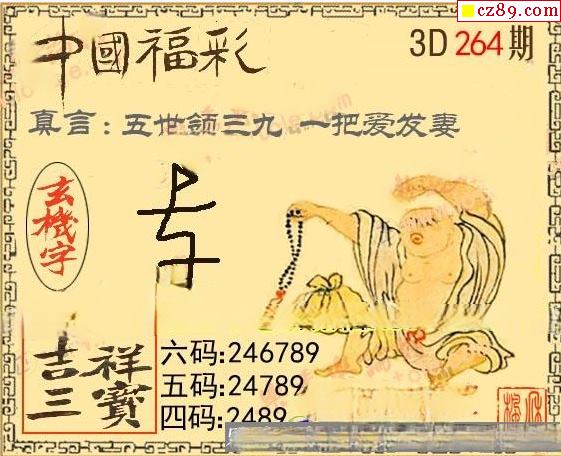 cz89.com
中國福彩 3D 264 期
真言：五世领三九 一把爱发妻
玄機字
吉祥
三寶
六码:246789
五码:24789
四码:2489